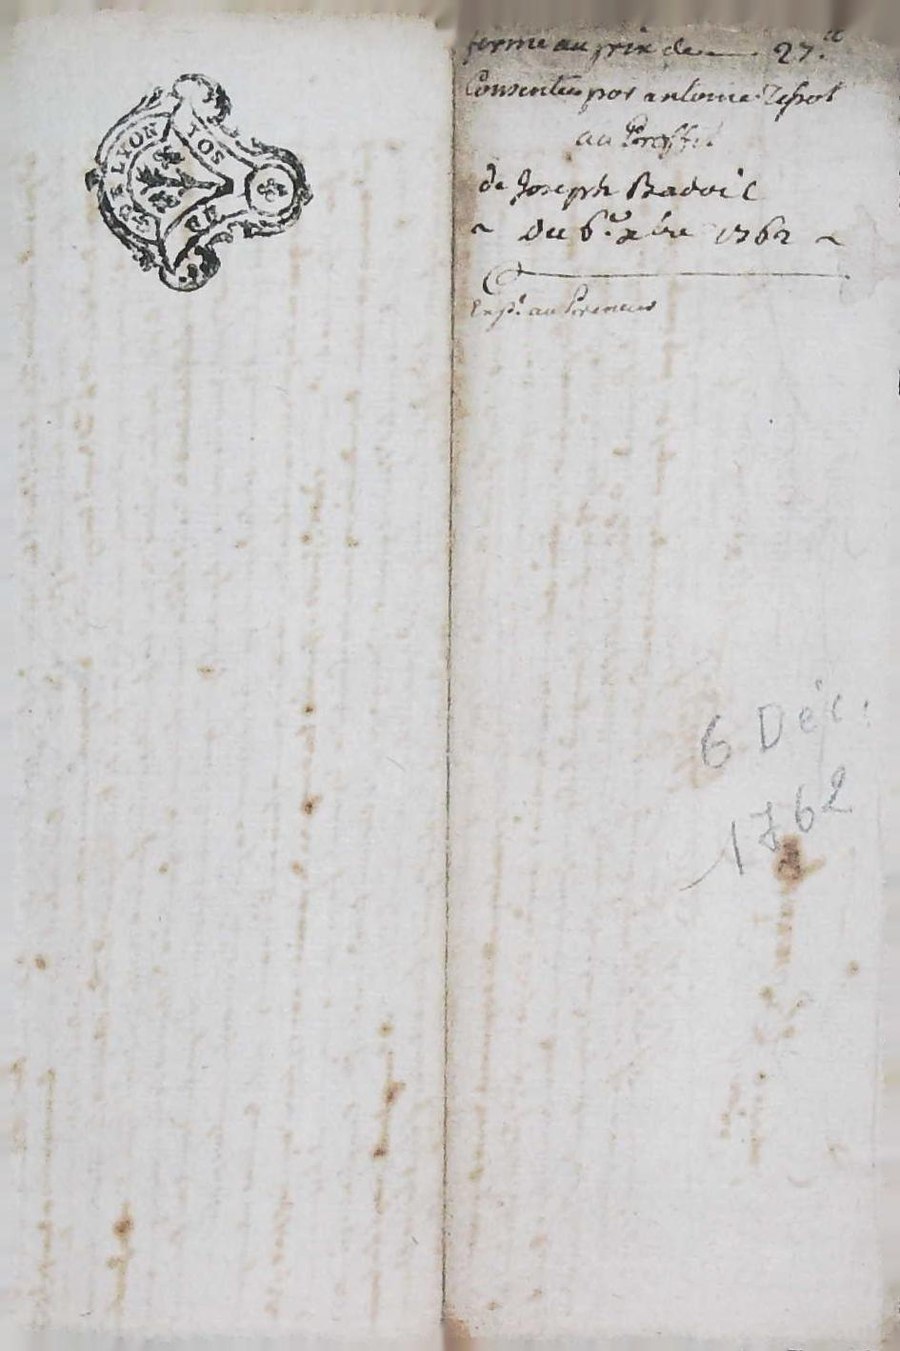 DE LYON
SOL
DE
ferme au prix de 27.tt
Consentie par antoine
au Proffit
de Joseph Badoil
~ du 6.e xbre 1762 ~
Exp.n au Preneur
6 Déc.
1762